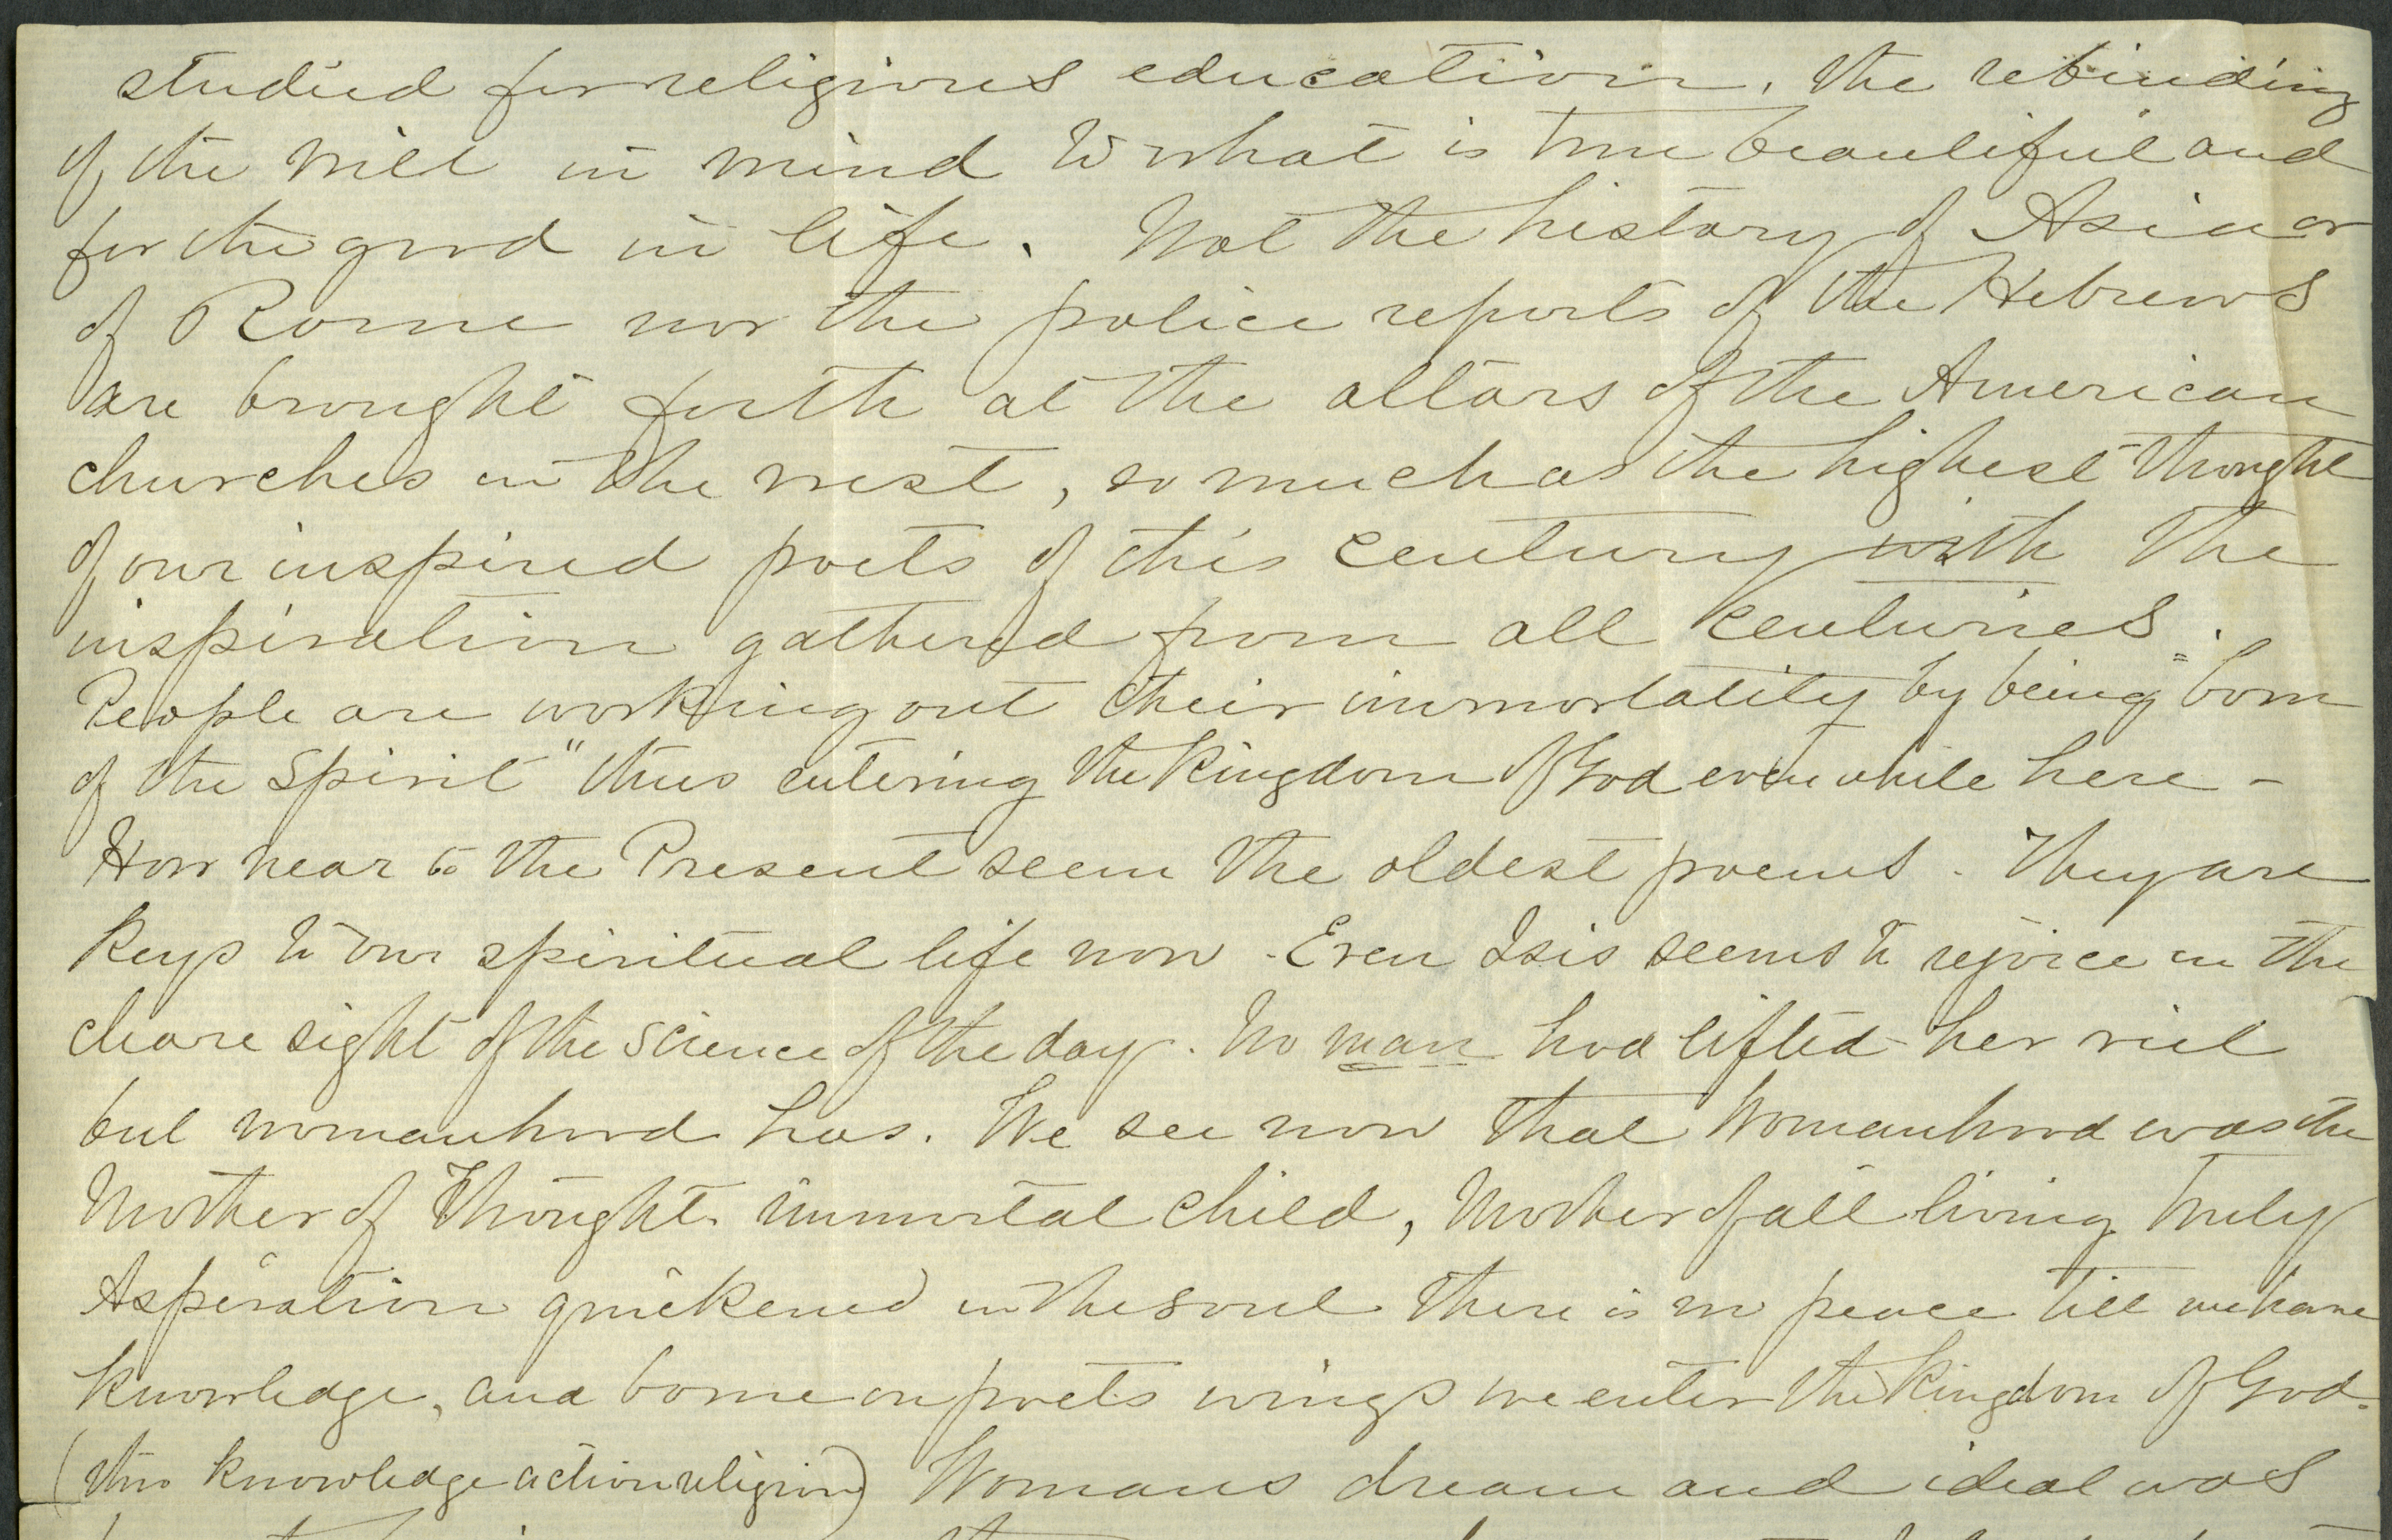 studied for religious education, the rebinding
of the will in mind to what is true beautiful and
for the good in life. Not the history of Asia or
of Rome nor the police reports of the Hebrews
are brought forth at the altars of the American
churches in the west, so much as the highest thought
of our inspired poets of this century with the
inspiration gathered from all centuries.
People are working out their immortality by being "born
of the Spirit" thus entering the Kingdom of God even while here -
How near to the Present seem the oldest poems. They are
Keys to our spiritual life now. Even Isis seems to rejoice in the
sight of the science of the day. No man had lifted her viel
but womanhood has. We see now that Womanhood was the
Mother of Thoughts immortal child, Mother of all living truly
Aspiration quickened in the soul there is no peace till we have
Knowledge, and borne on poets wings we enter the Kingdom of God.
(thro knowledge action religion) Womans dream and ideal was